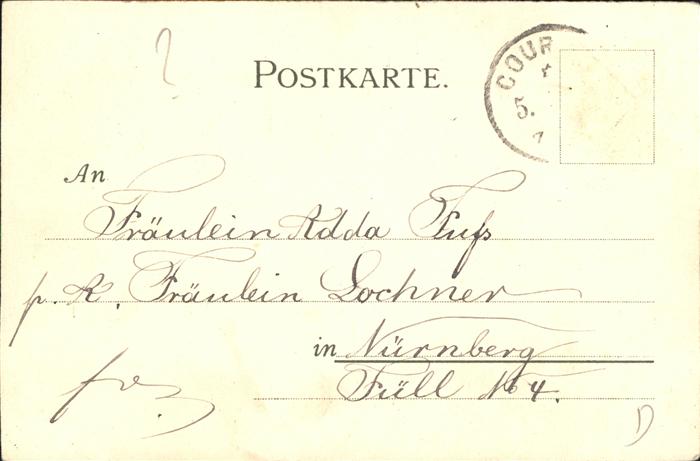 POSTKARTE.
COUR
5.
An
Fräulein Adda Fuß
p. A. Fräulein Lochner
in Nürnberg
Füll No 4.